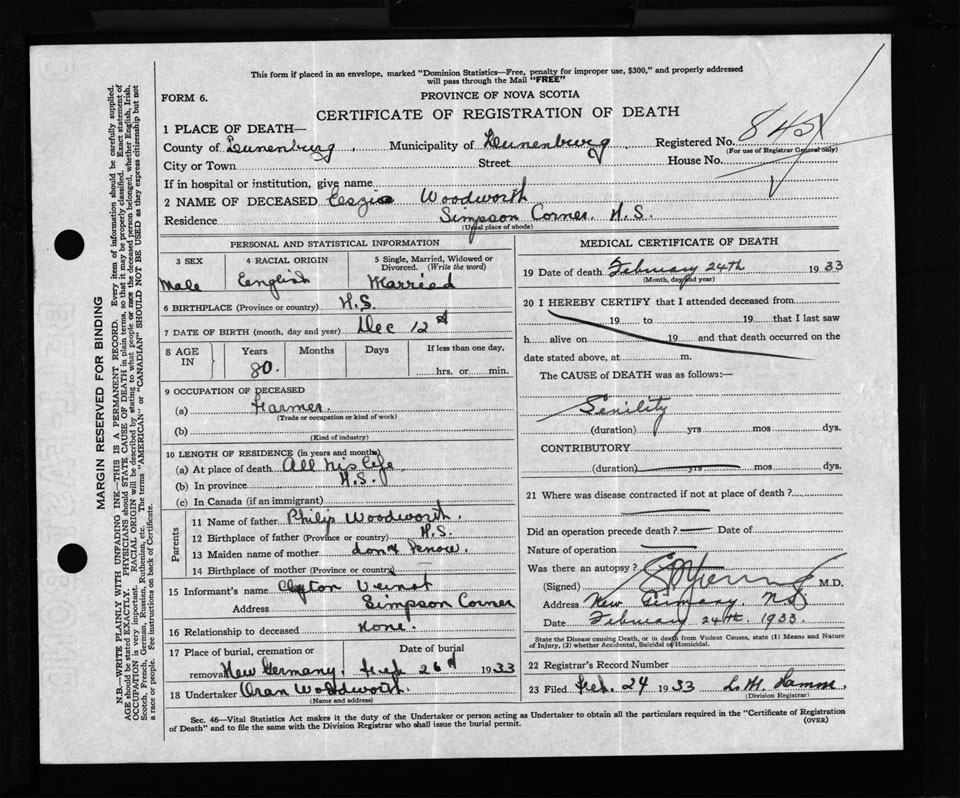 This form if placed in an envelope, marked "Dominion Statistics—Free, penalty for improper use, $300," and properly addressed
will pass through the Mail "FREE"
FORM 6.
PROVINCE OF NOVA SCOTIA
CERTIFICATE OF REGISTRATION OF DEATH
1 PLACE OF DEATH—
County of Lunenburg. Municipality of Lunenburg. Registered No. 845
(For use of Registrar General only)
City or Town Street House No.
If in hospital or institution, give name
2 NAME OF DECEASED Woodworth
Residence Simpson Corner. N.S.
(Usual place of abode)
PERSONAL AND STATISTICAL INFORMATION
3 SEX 4 RACIAL ORIGIN 5 Single, Married, Widowed or
Divorced. (Write the word)
Male English Married
6 BIRTHPLACE (Province or country) N.S.
7 DATE OF BIRTH (month, day and year) Dec 12
8 AGE IN Years Months Days If less than one day,
80. hrs. or min.
9 OCCUPATION OF DECEASED
(a) Farmer.
(Trade or occupation or kind of work)
(b)
(Kind of industry)
10 LENGTH OF RESIDENCE (in years and months)
(a) At place of death All his life
(b) In province N.S.
(c) In Canada (if an immigrant)
Parents
11 Name of father Philip Woodworth.
12 Birthplace of father (Province or country) N.S.
13 Maiden name of mother dont know.
14 Birthplace of mother (Province or country) —
15 Informant's name Clayton Veinot
Address Simpson Corner
16 Relationship to deceased None.
17 Place of burial, cremation or Date of burial
removal New Germany. Feb 26 1933
18 Undertaker Oran Woodworth.
(Name and address)
MEDICAL CERTIFICATE OF DEATH
19 Date of death February 24th 1933
(Month, day and year)
20 I HEREBY CERTIFY that I attended deceased from
19 to 19 that I last saw
h alive on 19 and that death occurred on the
date stated above, at m.
The CAUSE of DEATH was as follows:—
Senility
(duration) yrs mos dys.
CONTRIBUTORY
(duration) yrs mos dys.
21 Where was disease contracted if not at place of death?
Did an operation precede death? — Date of
Nature of operation
Was there an autopsy?
(Signed) M.D.
Address New Germany. N.S.
Date February 24th. 1933.
State the Disease causing Death, or in death from Violent Causes, state (1) Means and Nature
of Injury, (2) whether Accidental, Suicidal or Homicidal.
22 Registrar's Record Number
23 Filed Feb. 24 1933
(Division Registrar)
Sec. 46—Vital Statistics Act makes it the duty of the Undertaker or person acting as Undertaker to obtain all the particulars required in the "Certificate of Registration
of Death" and to file the same with the Division Registrar who shall issue the burial permit.
(OVER)
MARGIN RESERVED FOR BINDING
N.B.—WRITE PLAINLY WITH UNFADING INK—THIS IS A PERMANENT RECORD. Every item of information should be carefully supplied.
AGE should be stated EXACTLY. PHYSICIANS should STATE CAUSE OF DEATH in plain terms, so that it may be properly classified. Exact statement of
OCCUPATION is very important. RACIAL ORIGIN will be described by stating to what people or race the deceased person belonged, whether English, Irish,
Scotch, French, German, Russian, Ruthenian, etc. The terms "AMERICAN" or "CANADIAN" SHOULD NOT BE USED as they express citizenship but not
a race or people. See instructions on back of Certificate.